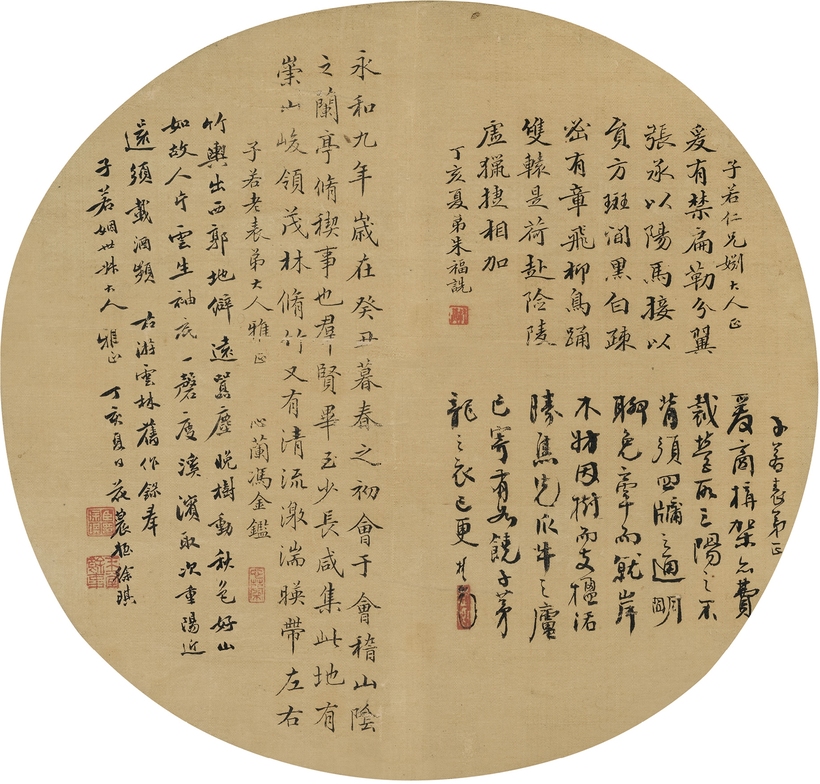 子若仁兄姻大人正
爰有禁扁勒分翼
張承以陽馬接以
員方斑間黑白疎
密有章飛柳鳥踊
雙轅是荷赴險陵
虛獵捷相加
丁亥夏弟朱福詵
子若表弟正
爰商搆架不費
裁營取三陽之不
背須四牖之通明
聊免牽而就岸
不妨因樹而支楹活
焦先瓜牛之廬
已寄有如饒子茅
龍之衣已更
永和九年歲在癸丑暮春之初會于會稽山陰
之蘭亭脩稧事也羣賢畢至少長咸集此地有
崇山峻領茂林脩竹又有清流激湍暎帶左右
子若老表弟大人雅正
心蘭馮金鑑
竹輿出西郭地僻遠囂塵晚樹動秋色好山
如故人片雲生袖底一磬度溪濱取次重陽近
還須載酒頻
右游雲林舊作錄奉
子若姻世大人雅正
丁亥夏日花農徐琪